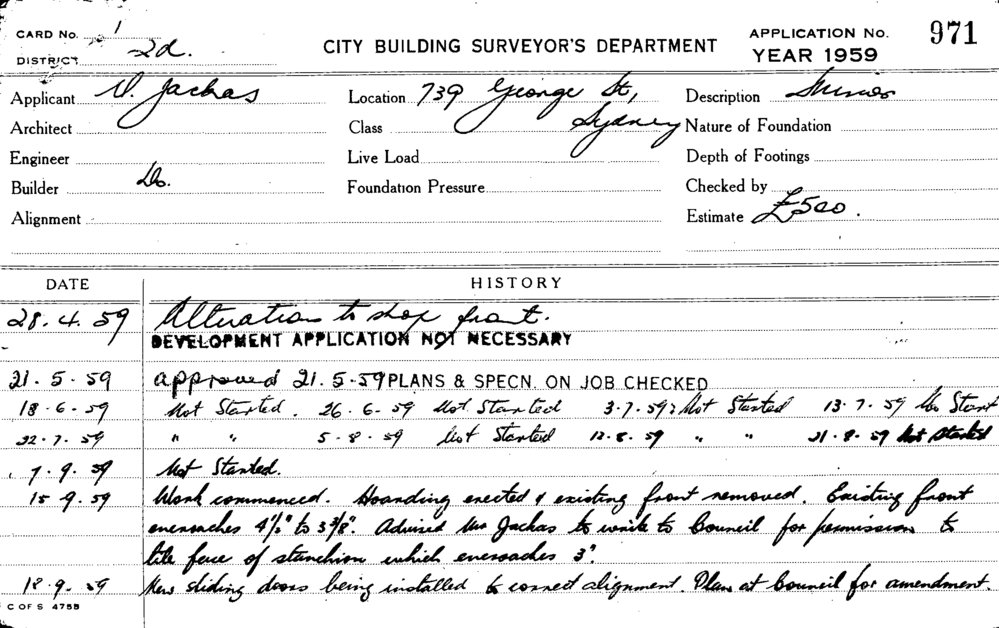 CARD No. 1
DISTRICT 2d.
CITY BUILDING SURVEYOR'S DEPARTMENT
APPLICATION No. 971
YEAR 1959
Applicant V. Jackas Location 739 George St, Description Minor
Architect Class Sydney Nature of Foundation
Engineer Live Load Depth of Footings
Builder Do. Foundation Pressure Checked by
Alignment Estimate £500.
DATE HISTORY
28.4.59 Alteration to shop front.
DEVELOPMENT APPLICATION NOT NECESSARY
21.5.59 approved 21.5.59 PLANS & SPECN. ON JOB CHECKED
18.6.59 Not Started. 26.6.59 Not Started 3.7.59: Not Started 13.7.59 No Start
22.7.59 " " 5.8.59 Not Started 12.8.59 " " 21.8.59 Not Started
7.9.59 Not Started.
15.9.59 Work commenced. Hoarding erected & existing front removed. Existing front
encroaches 4½" to 3⅜". Advised Mr Jackas to write to Council for permission to
tile face of stanchion which encroaches 3".
18.9.59 New sliding doors being installed to correct alignment. Plan at Council for amendment.
C OF S 475B